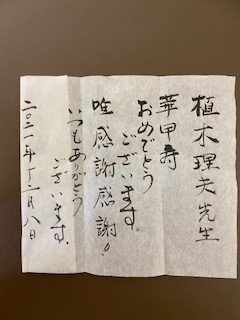 植木理夫先生
華甲寿
おめでとう
ございます。
唯感謝感謝!
いつもありがとう
ございます。
二〇二一年十二月八日